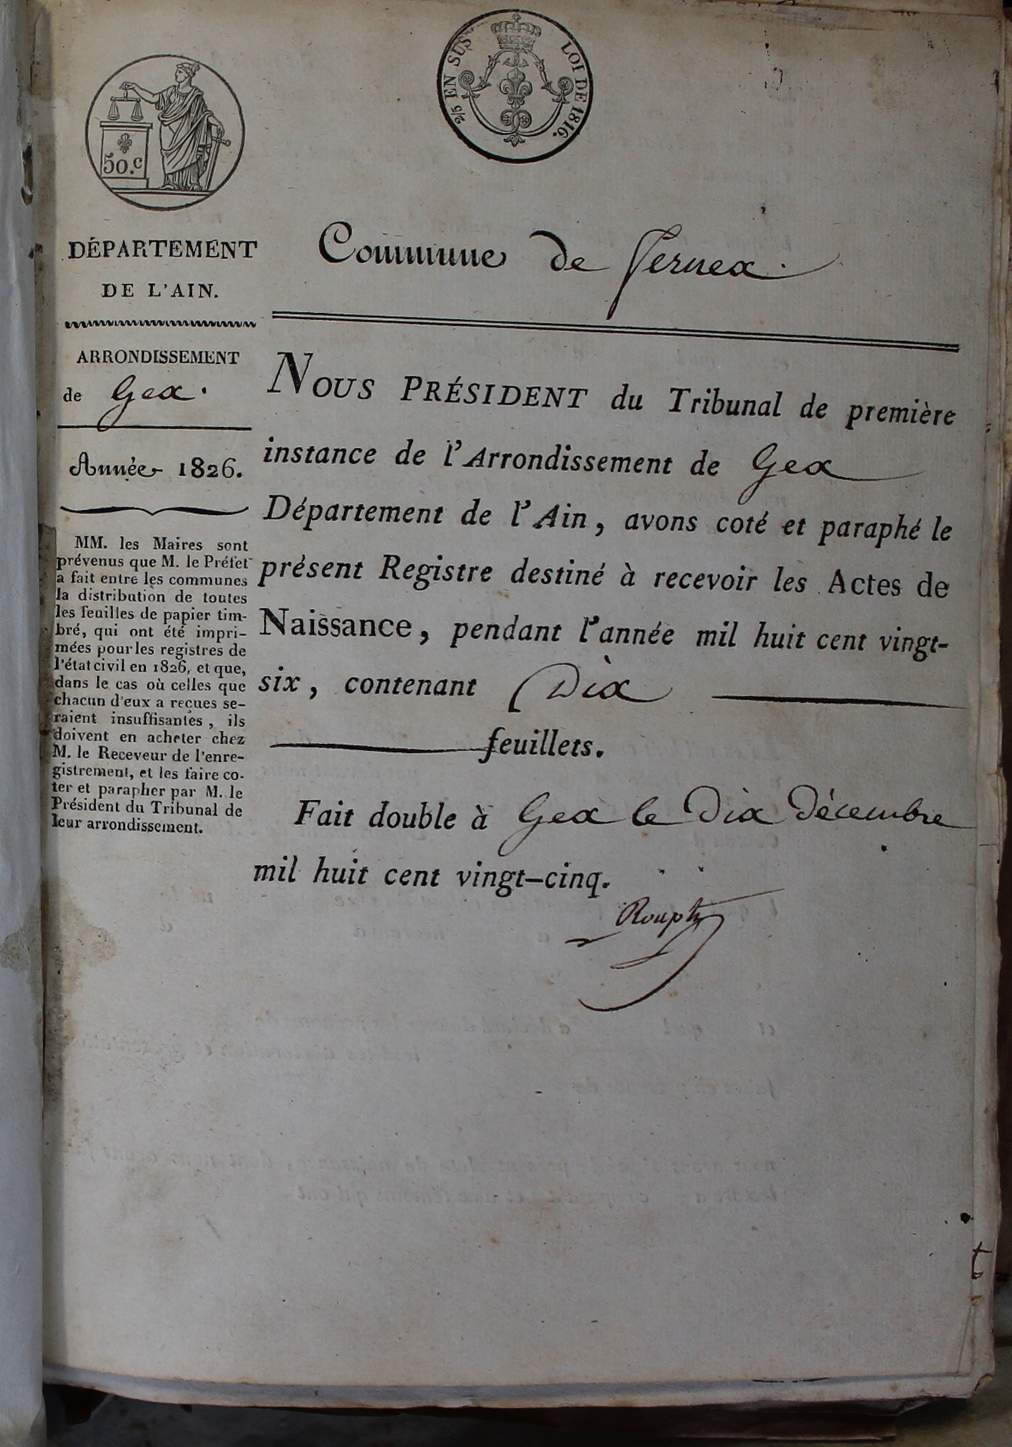 2/5 EN SUS
LOI DE 1816.
50.c
DÉPARTEMENT
DE L'AIN.
ARRONDISSEMENT
de Gex.
Année 1826.
MM. les Maires sont
prévenus que M. le Préfet
a fait entre les communes
la distribution de toutes
les feuilles de papier tim-
bré, qui ont été impri-
mées pour les registres de
l'état civil en 1826, et que,
dans le cas où celles que
chacun d'eux a reçues se-
raient insuffisantes, ils
doivent en acheter chez
M. le Receveur de l'enre-
gistrement, et les faire co-
ter et parapher par M. le
Président du Tribunal de
leur arrondissement.
Commune de Fernex.
NOUS PRÉSIDENT du Tribunal de première
instance de l'Arrondissement de Gex
Département de l'Ain, avons coté et paraphé le
présent Registre destiné à recevoir les Actes de
Naissance, pendant l'année mil huit cent vingt-
six, contenant Dix
feuillets.
Fait double à Gex le Dix Décembre
mil huit cent vingt-cinq.